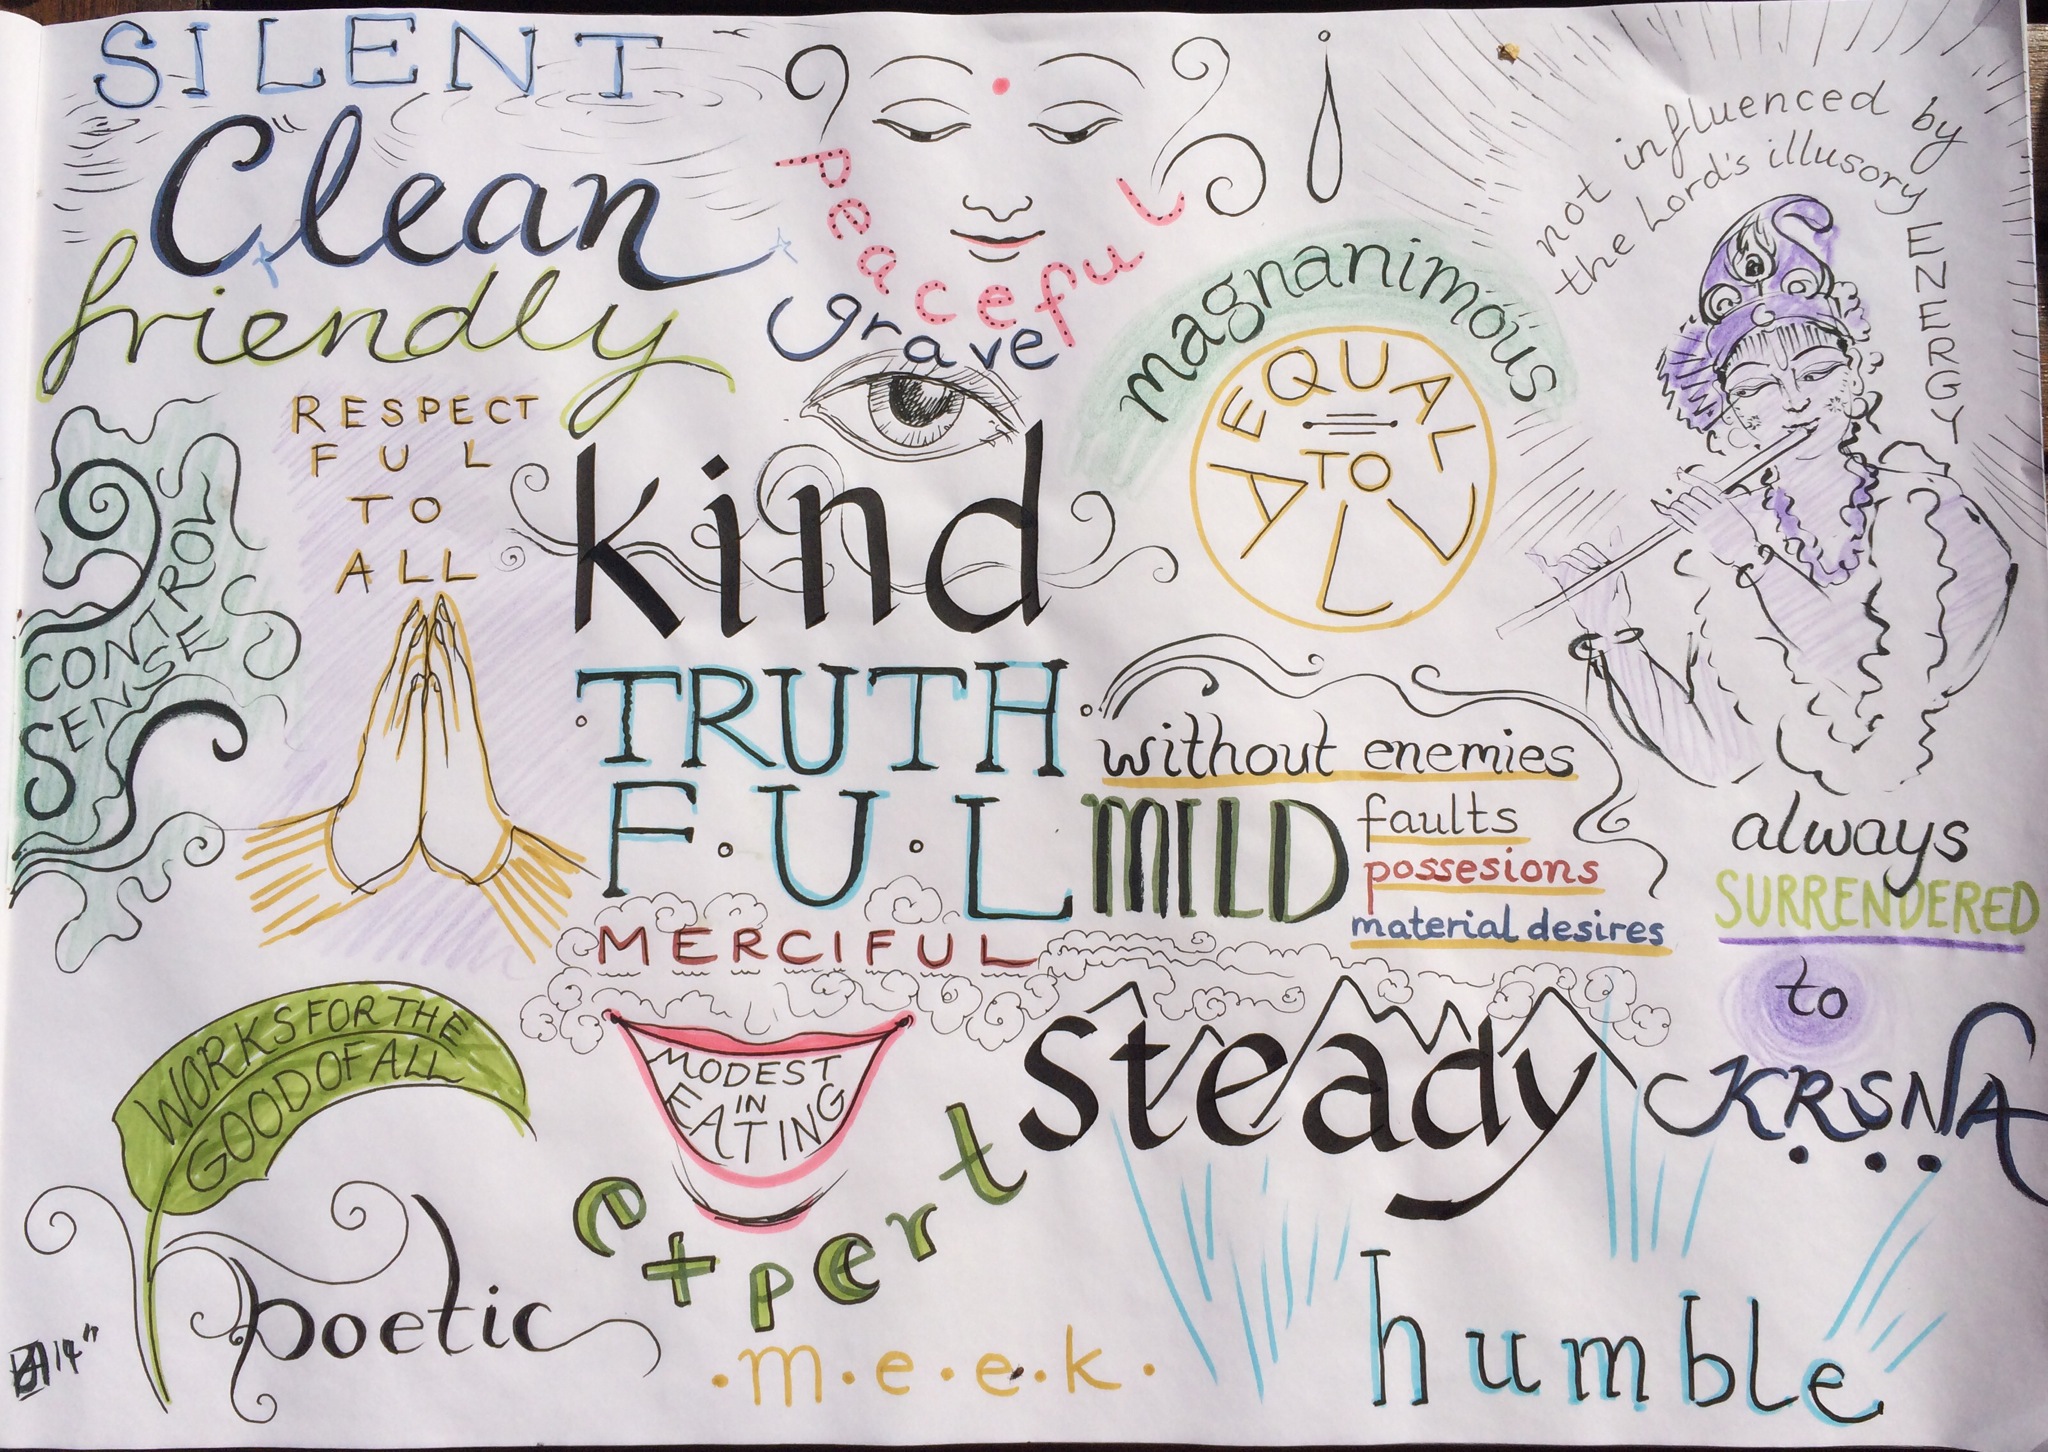 SILENT
Clean
friendly
Peaceful
grave
not influenced by
the Lord's illusory ENERGY
magnanimous
EQUAL
TO
ALL
RESPECT
FUL
TO
ALL
CONTROL
SENSES
kind
TRUTH
F.U.L
without enemies
faults
possesions
material desires
MILD
always
SURRENDERED
to
KṚṢṆA
MERCIFUL
WORKS FOR THE
GOOD OF ALL
MODEST
IN
EATING
steady
expert
poetic
.m.e.e.k.
humble
14"